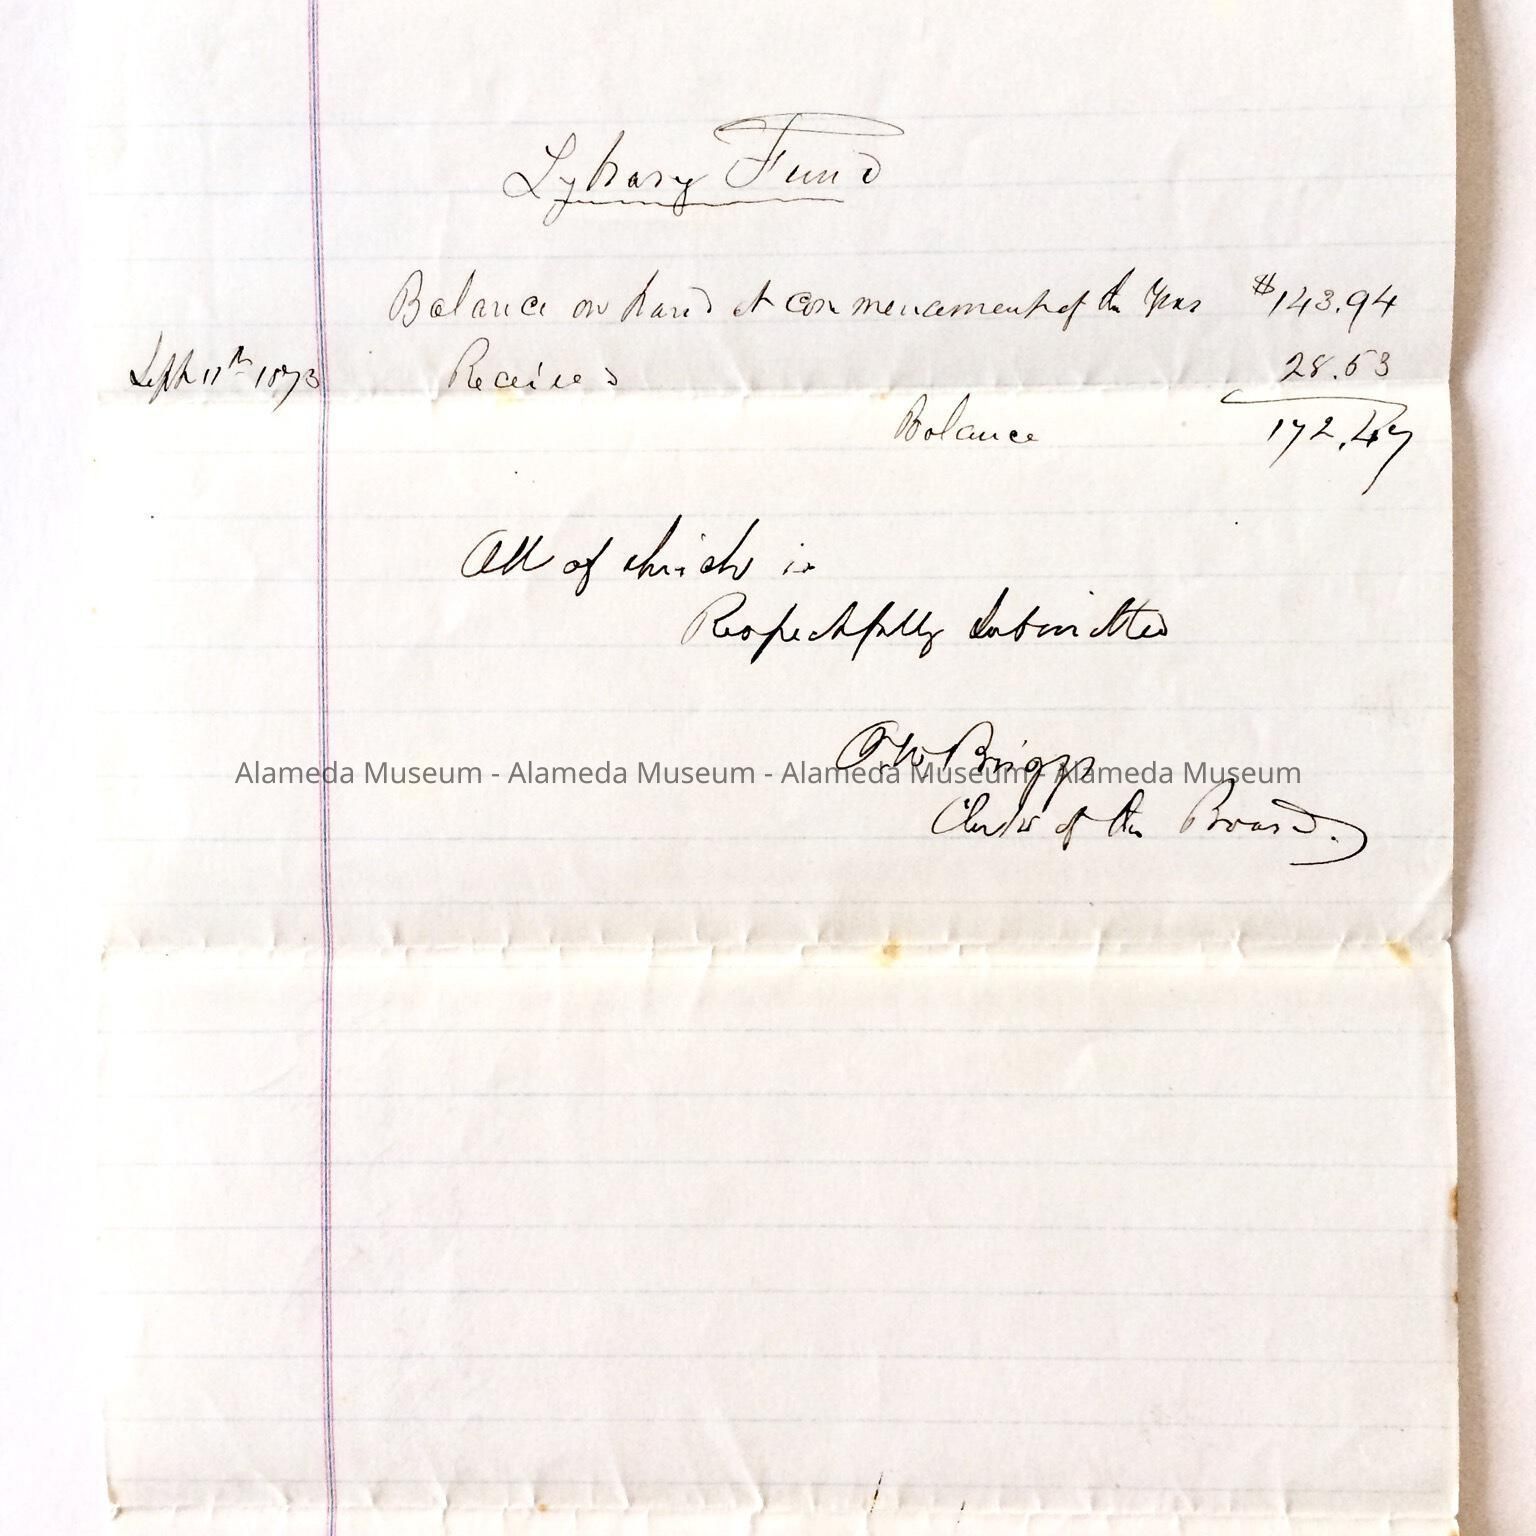 Lybrary Fund
Balance on hand at commencament of the Year $143.94
Sept 11th 1873 Received 28.53
Balance 172.47
All of which is
Respectfully Submitted
Briggs
Alameda Museum - Alameda Museum - Alameda Museum - Alameda Museum
Clerk of the Board.